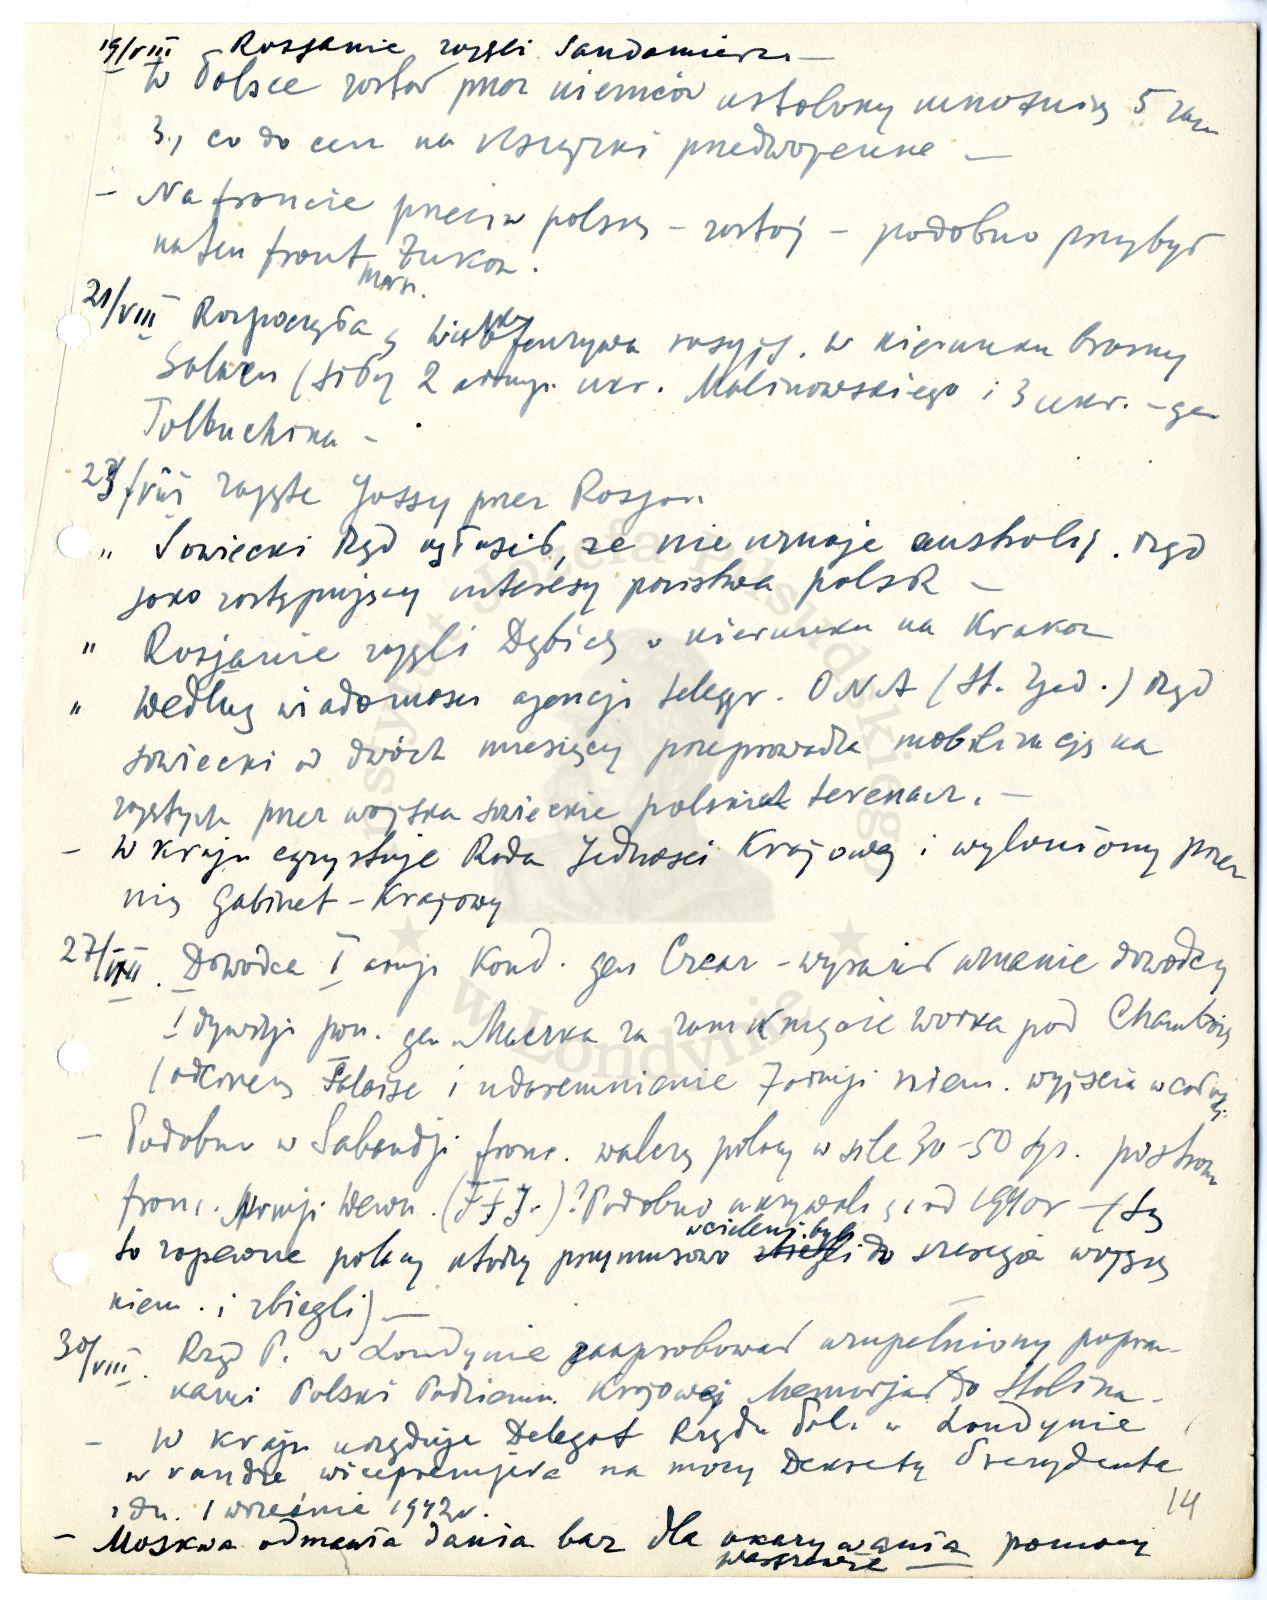 19/VIII Rosjanie zajęli Sandomierz –
W Polsce został przez niemców ustalony mnożnik 5 razy
3., co do cen na książki przedwojenne –
– Na froncie przeciw polsk. – zastój – podobno przybył
na ten front Żukow.
mars.
21/VIII Rozpoczęła się wielka ofenzywa rosyjs. w kierunku bramy
Galacu (siły 2 armji ukr. Malinowskiego i 3 ukr. – gen
Tolbuchina –
23/VIII zajęte Jassy przez Rosjan
" Sowiecki Rząd ogłosił, że nie uznaje . rząd
jako zastępujący interesy państwa polsk –
" Rosjanie zajęli Dębicę w kierunku na Kraków
" Według wiadomości agencji telegr. ONA (St. Zjed.) rząd
sowiecki w dwóch miesięcy przeprowadza mobilizację na
zajętych przez wojska sowieckie polskich terenach. –
– W kraju egzystuje Rada Jedności Krajowej i wyłoniony przez
nią Gabinet – Krajowy
27/VIII. Dowódca I armji Kand. gen Crerar – wyraził uznanie dowódcy
I dywizji panc. gen. Maczka za zamknięcie worka pod Chambois
(odcinek Falaise i udaremnienie 7 armji niem. wyjścia w całości.
– Podobno w Sabaudji franc. walczą polacy w sile 30–50 tys. po stronie
franc. Armji Wewn. (F.F.J.)? Podobno ukrywali się od 1940 r – (Są
to zapewne polacy którzy przymusowo wcieleni byli do szeregów wojska
niem. i zbiegli) –
30/VIII. Rząd P. w Londynie zaaprobował uzupełniony popraw-
kami Polski Podziemn. Krajowej Memorjał do Stalina –
– W kraju urzęduje Delegat Rządu Pol. w Londynie
w randze wicepremjera na mocy Dekretu Prezydenta
z dn. 1 września 1942 r.
– Moskwa odmawia dania baz dla okazywania pomocy
Warszawie –
14
w Londynie